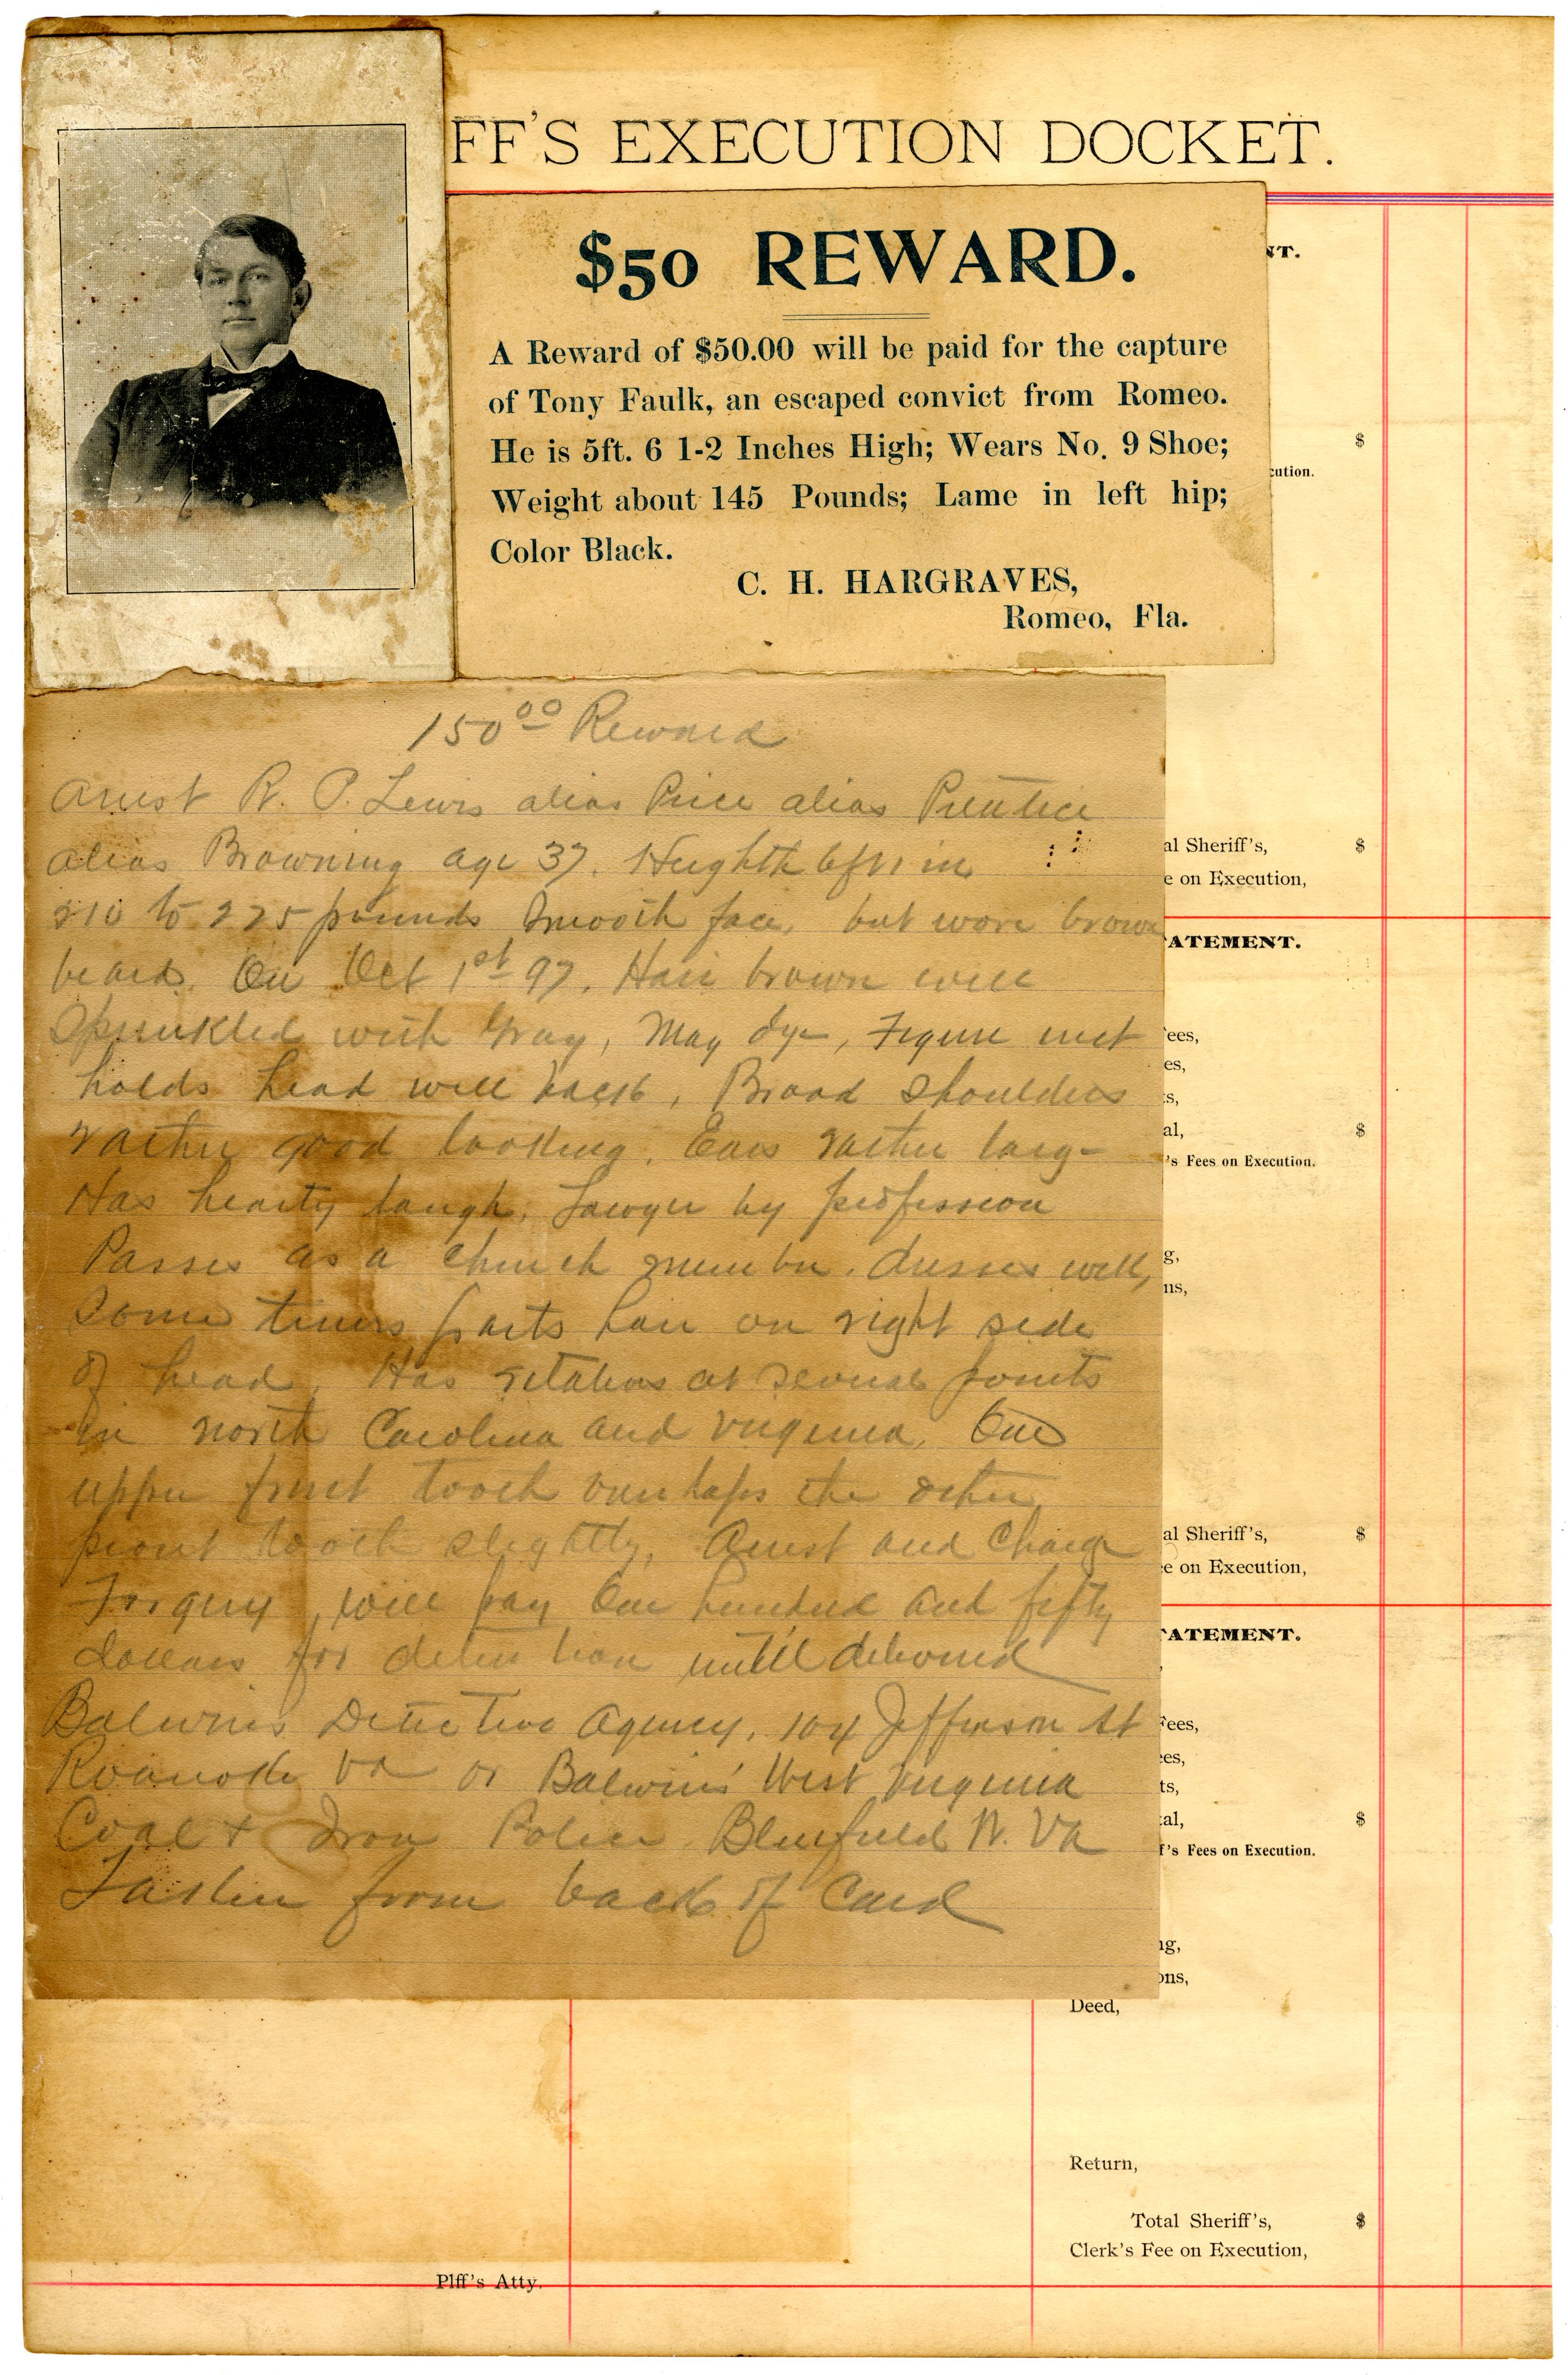 FF'S EXECUTION DOCKET.
$50 REWARD.
A Reward of $50.00 will be paid for the capture
of Tony Faulk, an escaped convict from Romeo.
He is 5ft. 6 1-2 Inches High; Wears No. 9 Shoe;
Weight about 145 Pounds; Lame in left hip;
Color Black.
C. H. HARGRAVES,
Romeo, Fla.
NT.
$
cution.
150 00 Reward
Arrest R. P. Lewis alias Price alias Prentice
alias Browning age 37. Heighth 6ft 1 in
210 to 225 pounds Smooth face, but wore brown
beard. On Oct 1st 97. Hair brown well
Sprinkled with Gray, May dye, Figure erect
holds head well back, Broad Shoulders
rather good looking. Ears rather large
Has hearty laugh, Lawyer by profession
Passes as a Church member. dresses well,
Some times parts hair on right side
of head, Has relatives at several points
in north Carolina and Virginia, One
upper front tooth overlaps the other
front tooth slightly, Arrest and Charge
Forgery, will pay One hundred and fifty
dollars for detention untill delivered
Balwins Detective Agency, 104 Jefferson St
Roanoke Va or Balwins' West Virginia
Coal & Iron Police Bluefield W. Va
Taken from back of Card
al Sheriff's, $
e on Execution,
ATEMENT.
ees,
es,
s,
al, $
's Fees on Execution.
g,
ns,
al Sheriff's, $
e on Execution,
ATEMENT.
Fees,
es,
ts,
al, $
f's Fees on Execution.
ng,
ons,
Deed,
Return,
Total Sheriff's, $
Clerk's Fee on Execution,
Plff's Atty.